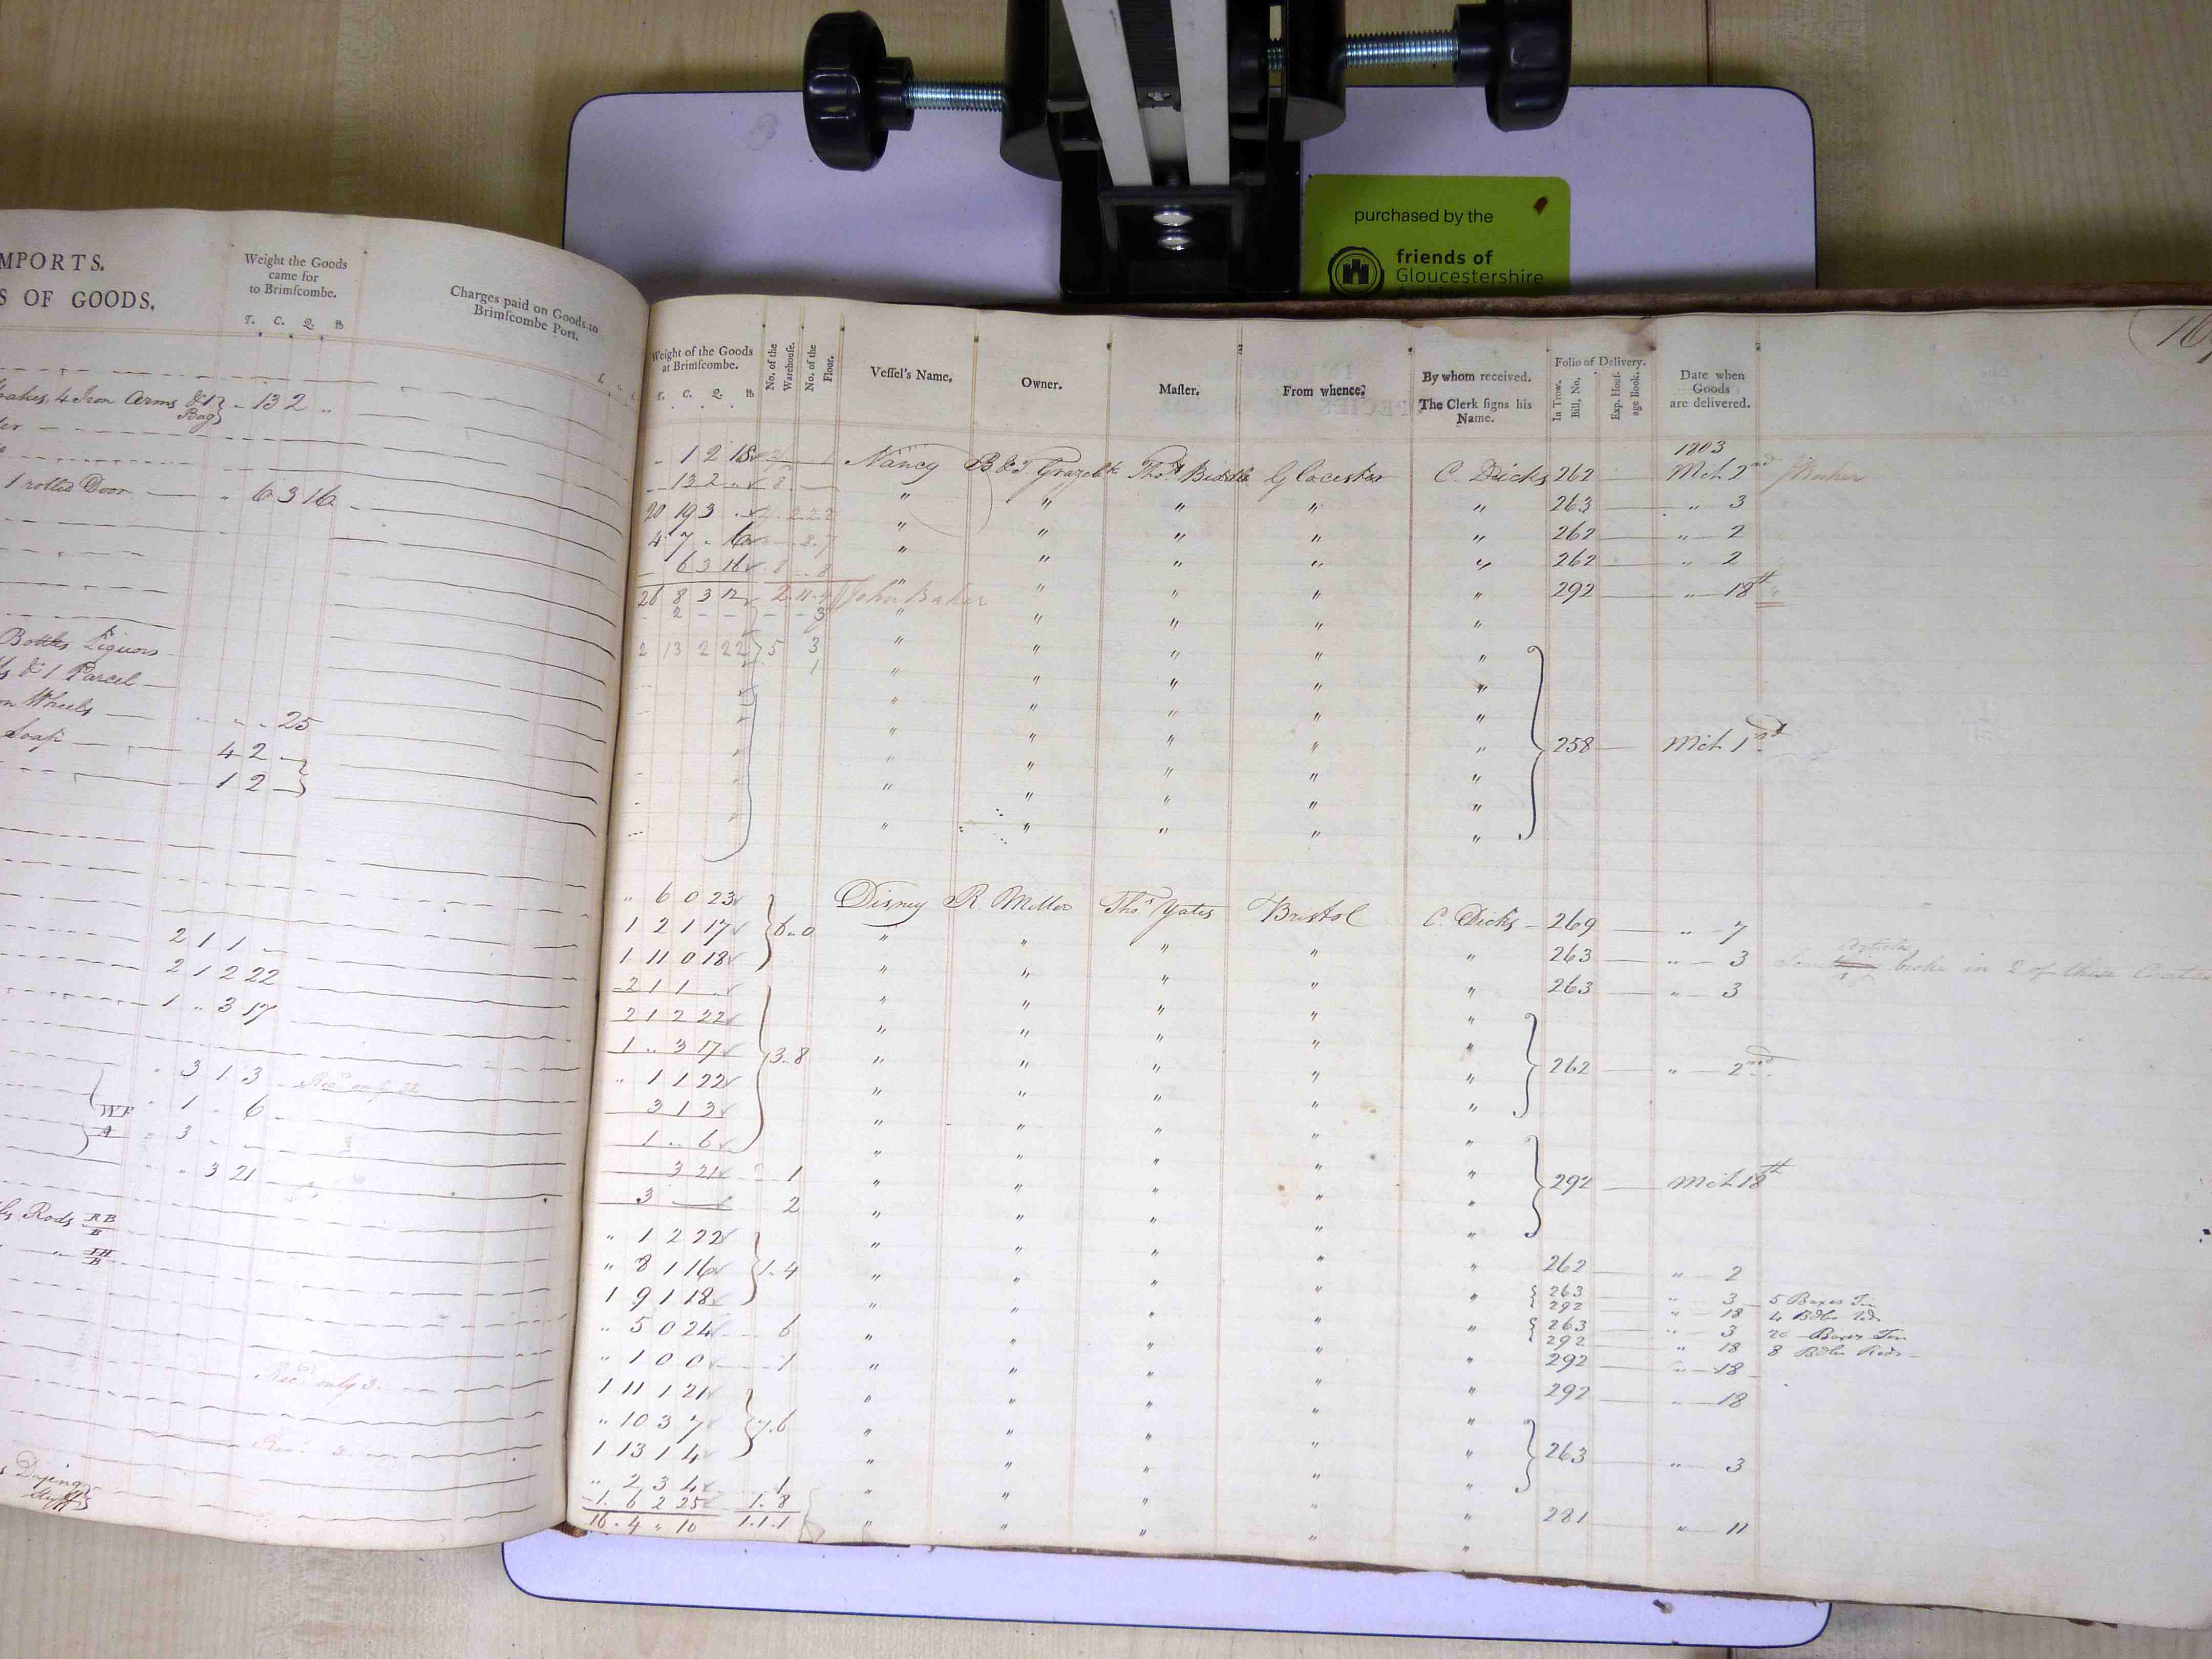 purchased by the
friends of
Gloucestershire
MPORTS.
S OF GOODS.
Weight the Goods
came for
to Brimſcombe.
T. C. Q. lb
Charges paid on Goods to
Brimſcombe Port.
4 Iron Arms &1 - 13 2 "
Bag
1 rolled Door — " 6 3 16
Bottles Liquors
& 1 Parcel
Wheels — " " - 25
Soap — 4 2 -
1 2 -
2 1 1 -
2 1 2 22
1 " 3 17
" 3 1 3 Recd only 22
WF " 1 - 6
A " 3 - -
" " 3 21
Rods RB
B
" IH
B
Recd only 3.
Drying
Stuff
Weight of the Goods
at Brimſcombe.
T. C. Q. lb
No. of the
Warehouſe.
No. of the
Floor.
Veſſel's Name.
Owner.
Maſter.
From whence.
By whom received.
The Clerk ſigns his
Name.
Folio of Delivery.
In Trow.
Bill, No.
Exp. Houſ-
age Book.
Date when
Goods
are delivered.
1803
- 1 2 18 Nancy B & T Grazebk Thos Biddle Glocester C. Dicks 262 Mch 2nd J Baker
- 13 2 " 8 " " " " " 263 " 3
20 19 3 . " " " " " 262 " 2
4 7 . 16 " " " " " 262 " 2
- 6 3 16 8 8 " " " " " 292 " 18th "
26 8 3 12 2.11.4 John Baker
- 2 - - 3 " " " " "
2 13 2 22 5 3 " " " " "
1 " " " " "
" " " " " 258 Mch 1st
" " " " "
" " " " "
" " " " "
" 6 0 23 Disney R. Miller Thos Yates Bristol C. Dicks - 269 " 7
1 2 1 17 6..0 " " " " " 263 " 3 Articles broke in 2 of these
1 11 0 18 " " " " " 263 " 3
- 2 1 1 - " " " " "
2 1 2 22 " " " " "
1 .. 3 17 3..8 " " " " " 262 " 2nd
" 1 1 22 " " " " "
3 1 3 " " " " "
1 .. 6 " " " " "
3 21 1 " " " " " 292 Mch 18th
3 — 2 " " " " "
" 1 2 22 " " " " " 262 " 2
" 8 1 16 1..4 " " " " " 263 " 3 5 Boxes Tin
292 " 18 4 Bdls Rds
1 9 1 18 " " " " " 263 " 3 20 Boxes Tin
292 " 18 8 Bdls Rods
" 5 0 24 6 " " " " " 292 " 18
" 1 0 0 1 " " " " " 292 " 18
1 11 1 21 " " " " "
" 10 3 7 7.6 " " " " " 263 " 3
1 13 1 4 " " " " "
" 2 3 4 1 " " " " " 281 " 11
1. 6 2 25 1. 8 " " " " "
16 . 4 " 10 1.1.1